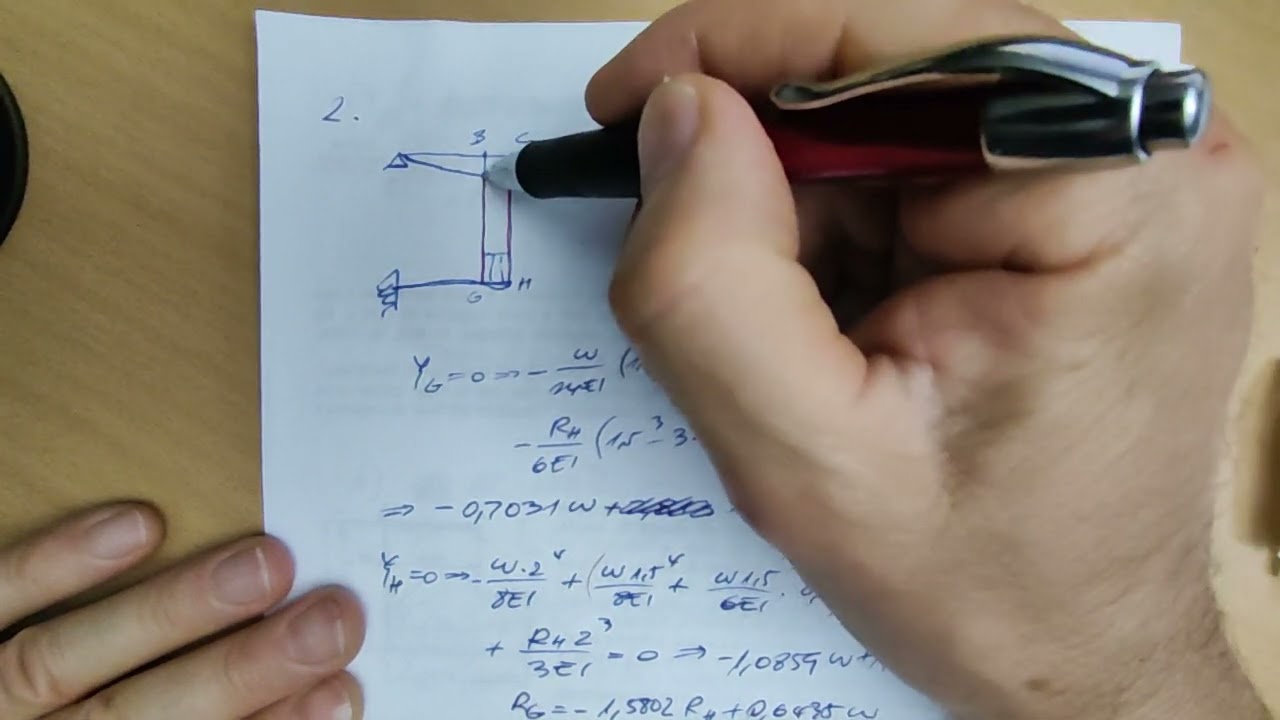 2.
B C
G H
Y_G = 0 ⇒ - w/24EI (1,
- R_H/6EI (1,5³ - 3.
⇒ - 0,7031 w +
Y_H = 0 ⇒ - w·2⁴/8EI + (w 1,5⁴/8EI + w 1,5/6EI ·
+ R_H 2³/3EI = 0 ⇒ -1,0859 w +
R_G = - 1,5802 R_H + 0,6435 w